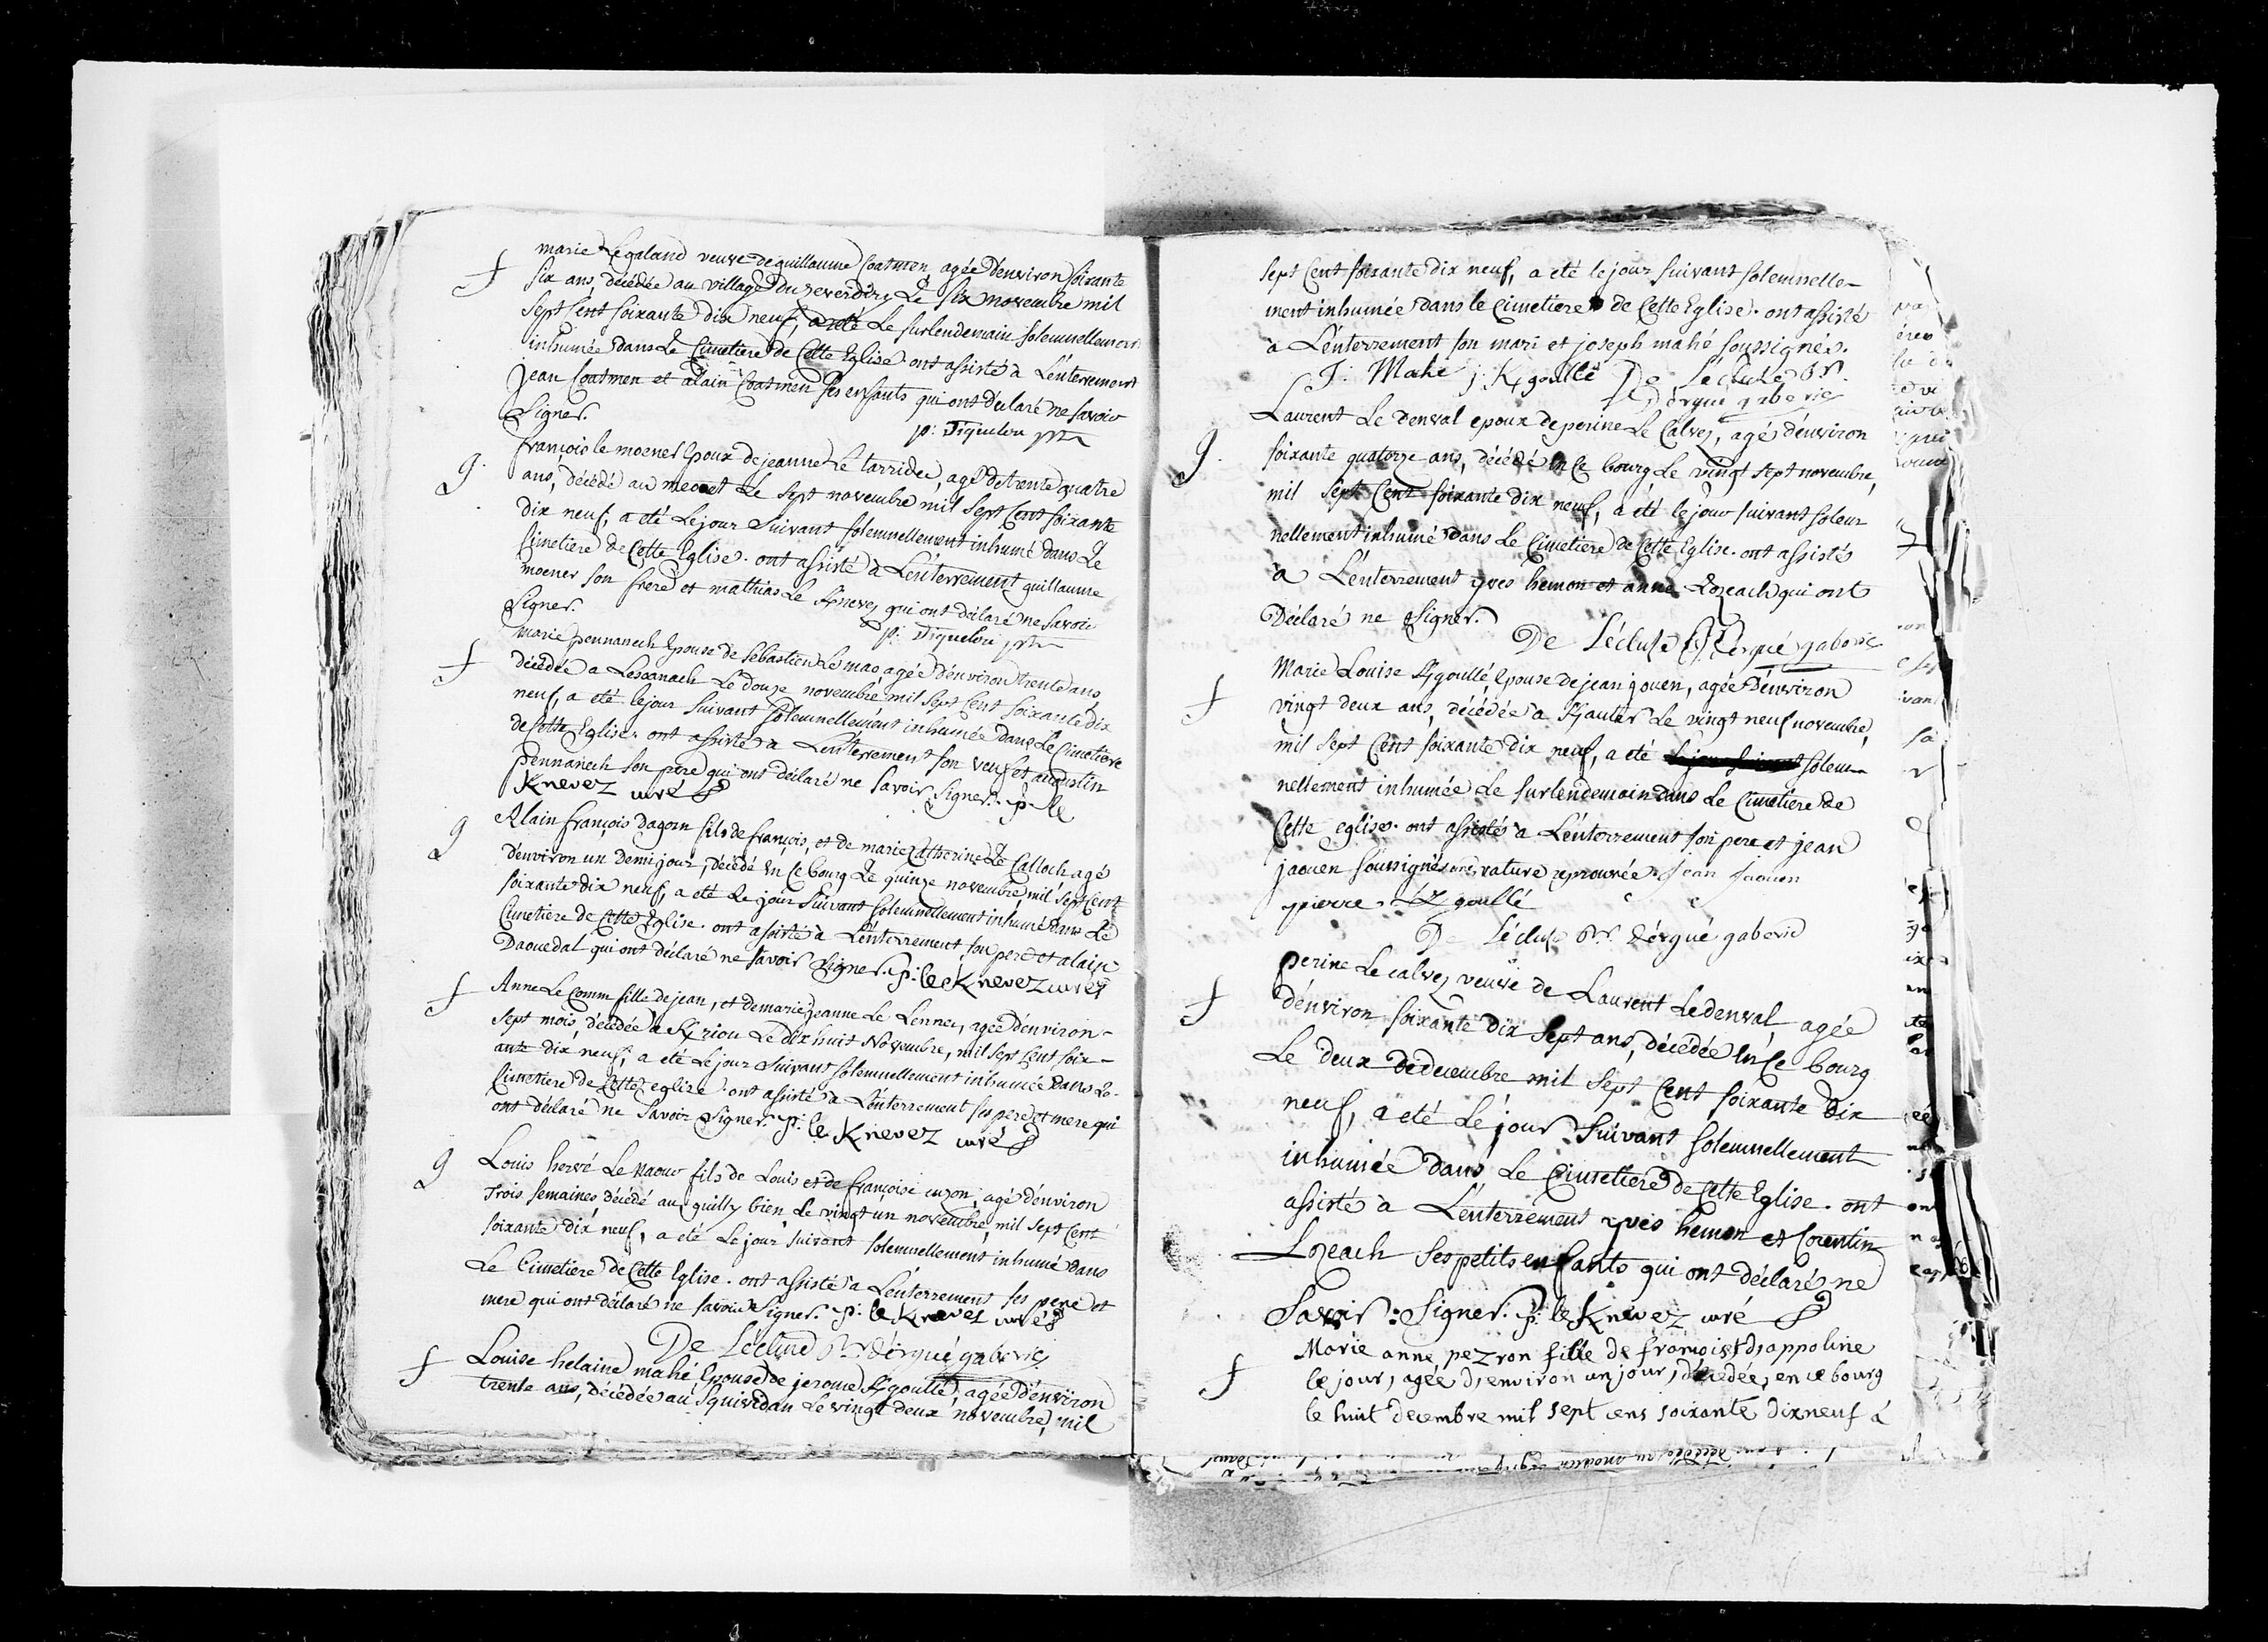 marie Le galand veuve de guillaume Coatmen, agée d'environ soixante
f six ans, décédée au village du reverdiry Le six novembre mil
sept cent soixante dix neuf, a eté Le surlendemain solemnellement
inhumée dans Le Cimetiere de Cette Eglise. ont assisté à L'enterrement
jean Coatmen et alain Coatmen ses enfants qui ont declaré ne savoir
signer. p: Tiquelou ptre
françois le moener Epoux de jeanne Le tarridec, agé de trente quatre
g. ans, décédé au Le sept novembre mil sept Cent soixante
dix neuf, a eté Le jour suivant solemnellement inhumé dans Le
cimetiere de Cette Eglise. ont assisté à L'enterrement guillaume
moener son frere et mathias Le Knevez qui ont déclaré ne savoir
signer. p: Tiquelou ptre
marie pennanech Epouse de sébastien Le mao agée d'environ trente ans,
f décédée a Lesoanach Le douze novembre mil sept Cent soixante dix
neuf, a eté le jour suivant solemnellement inhumée dans Le Cimetiere
de Cette Eglise. ont assisté a L'enterrement son veuf et augustin
pennanech son pere qui ont déclaré ne savoir signer. p. le
Knevez curé
Alain françois Dagorn fils de françois, et de marie Catherine Le Calloch agé
g d'environ un Demi jour, décédé En Ce bourg Le quinze novembre, mil sept Cent
soixante dix neuf, a eté Le jour suivant solemnellement inhumé dans Le
Cimetiere de Cette Eglise. ont assisté à L'enterrement son pere et alain
Daouedal qui ont déclaré ne savoir signer. p: le Knevez curé
Anne Le Comm fille de jean, et de marie jeanne Le Lennec, agée d'environ-
f sept mois, décédée a Kriou Le dix huit Novembre, mil sept Cent soix-
ante dix neuf, a eté Le jour suivant solemnellement inhumée dans Le-
Cimetiere de Cette eglise. ont assisté a L'enterrement ses pere et mere qui
ont déclaré ne savoir signer. p: le Knevez curé
Louis hervé Le naour fils de Louis et de françoise cuzon, agé d'environ
g Trois semaines décédé au quilly bien Le vingt un novembre, mil sept Cent
soixante dix neuf, a eté Le jour suivant solemnellement inhumé dans
Le Cimetiere de Cette Eglise. ont assisté a L'enterrement ses pere et
mere qui ont déclaré ne savoir signer. p: le Knevez curé
De Lécluse d'ergué gaberic
Louise helaine mahé Epouse de jerome Kgoullé, agée d'environ
f trente ans, décédée au Squividan Le vingt deux novembre, mil
sept Cent soixante dix neuf, a eté le jour suivant solemnelle-
ment inhumée dans le cimetiere de Cette Eglise. ont assisté
à L'enterrement son mari et joseph mahé soussignés.
J: Mahé j: Kgoullé De Lécluse
D'ergué gaberic
Laurent Le Denval epoux de perine Le Calvez, agé d'environ
g. soixante quatorze ans, décédé En Ce bourg Le vingt sept novembre,
mil sept Cent soixante dix neuf, a eté le jour suivant solem
nellement inhumé dans Le Cimetiere de Cette Eglise. ont assistés
à L'enterrement yves hemon et anne Lozeach qui ont
Déclaré ne signer.
De Lécluse d'ergué gaberic
Marie Louise Kgoullé, Epouse de jean jouen, agée d'environ
f vingt deux ans, décédée a Kjautes Le vingt neuf novembre,
mil sept Cent soixante dix neuf, a eté le jour suivant solem-
nellement inhumée Le surlendemain dans Le Cimetiere de
Cette eglise. ont assistés a L'enterrement son pere et jean
jaouen soussignés rature aprouvée. jean jaouen
pierre Kgoullé
De Lécluse d'ergué gaberic
perine Le calvez veuve de Laurent Ledenval, agée
f d'environ soixante dix sept ans, décédée En Ce bourg
Le deux de decembre mil sept Cent soixante dix
neuf, a eté Le jour suivant solemnellement
inhumée dans Le Cimetiere de Cette Eglise. ont
assisté à L'enterrement yves hemon et Corentin
Lozeach ses petits enfants qui ont déclarés ne
savoir signer. p: le Knevez curé
Marie anne pezron fille de françois et d'appoline
f le jour, agée d'environ un jour, décédée, en ce bourg
le huit decembre mil sept cens soixante dix neuf a